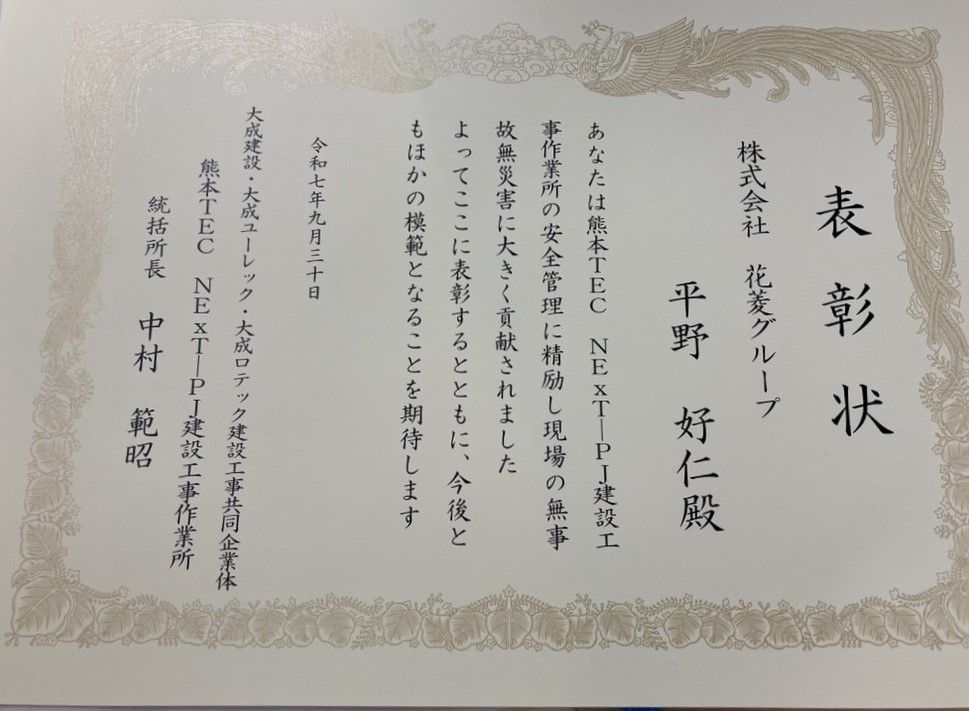 表彰状
株式会社 花菱グループ
平野 好仁殿
あなたは熊本TEC NExT－PJ建設工
事作業所の安全管理に精励し現場の無事
故無災害に大きく貢献されました
よってここに表彰するとともに、今後と
もほかの模範となることを期待します
令和七年九月三十日
大成建設・大成ユーレック・大成ロテック建設工事共同企業体
熊本TEC NExT－PJ建設工事作業所
統括所長 中村 範昭